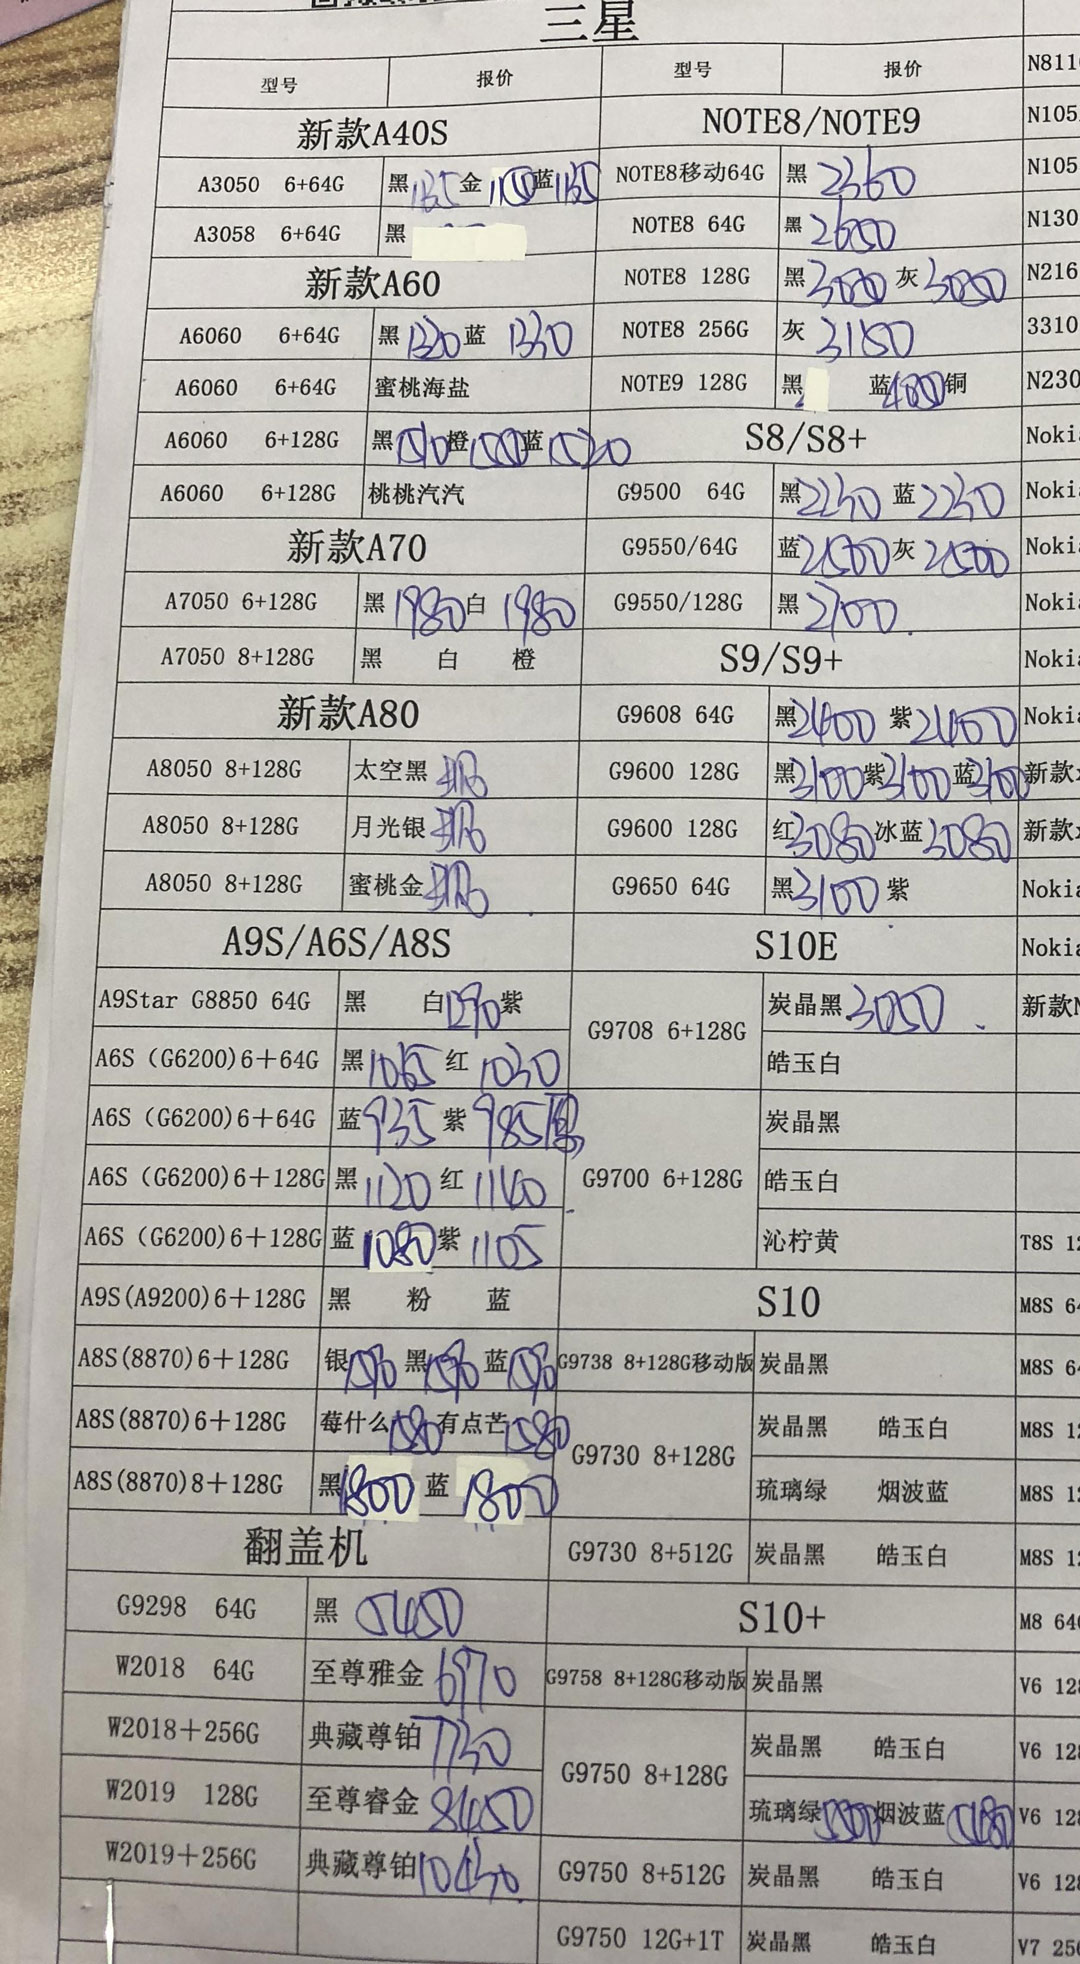 三星
型号 报价 型号 报价
新款A40S NOTE8/NOTE9
A3050 6+64G 黑1135金1150蓝1135 NOTE8移动64G 黑2360
A3058 6+64G 黑 NOTE8 64G 黑2650
新款A60 NOTE8 128G 黑 灰
A6060 6+64G 黑1330蓝1330 NOTE8 256G 灰3150
A6060 6+64G 蜜桃海盐 NOTE9 128G 黑 蓝 铜
A6060 6+128G 黑 橙 蓝1520 S8/S8+
A6060 6+128G 桃桃汽汽 G9500 64G 黑2230 蓝2230
新款A70 G9550/64G 蓝2500灰2500
A7050 6+128G 黑1980白1980 G9550/128G 黑2700
A7050 8+128G 黑 白 橙 S9/S9+
新款A80 G9608 64G 黑2400 紫2400
A8050 8+128G 太空黑 G9600 128G 黑3100紫3100蓝3100
A8050 8+128G 月光银 G9600 128G 红3080冰蓝3080
A8050 8+128G 蜜桃金 G9650 64G 黑3100紫
A9S/A6S/A8S S10E
A9Star G8850 64G 黑 白1290紫 G9708 6+128G 炭晶黑3050
A6S (G6200)6+64G 黑1065 红1030 皓玉白
A6S (G6200)6+64G 蓝935 紫985 炭晶黑
A6S (G6200)6+128G 黑1120 红1140 G9700 6+128G 皓玉白
A6S (G6200)6+128G 蓝1080紫1105 沁柠黄
A9S(A9200)6+128G 黑 粉 蓝 S10
A8S(8870)6+128G 银1590黑1590蓝1590 G9738 8+128G移动版 炭晶黑
A8S(8870)6+128G 莓什么1580有点芒1580 G9730 8+128G 炭晶黑 皓玉白
A8S(8870)8+128G 黑1800 蓝1800 琉璃绿 烟波蓝
翻盖机 G9730 8+512G 炭晶黑 皓玉白
G9298 64G 黑5450 S10+
W2018 64G 至尊雅金6970 G9758 8+128G移动版 炭晶黑
W2018+256G 典藏尊铂7730 G9750 8+128G 炭晶黑 皓玉白
W2019 128G 至尊睿金8450 琉璃绿 烟波蓝
W2019+256G 典藏尊铂10430 G9750 8+512G 炭晶黑 皓玉白
G9750 12G+1T 炭晶黑 皓玉白